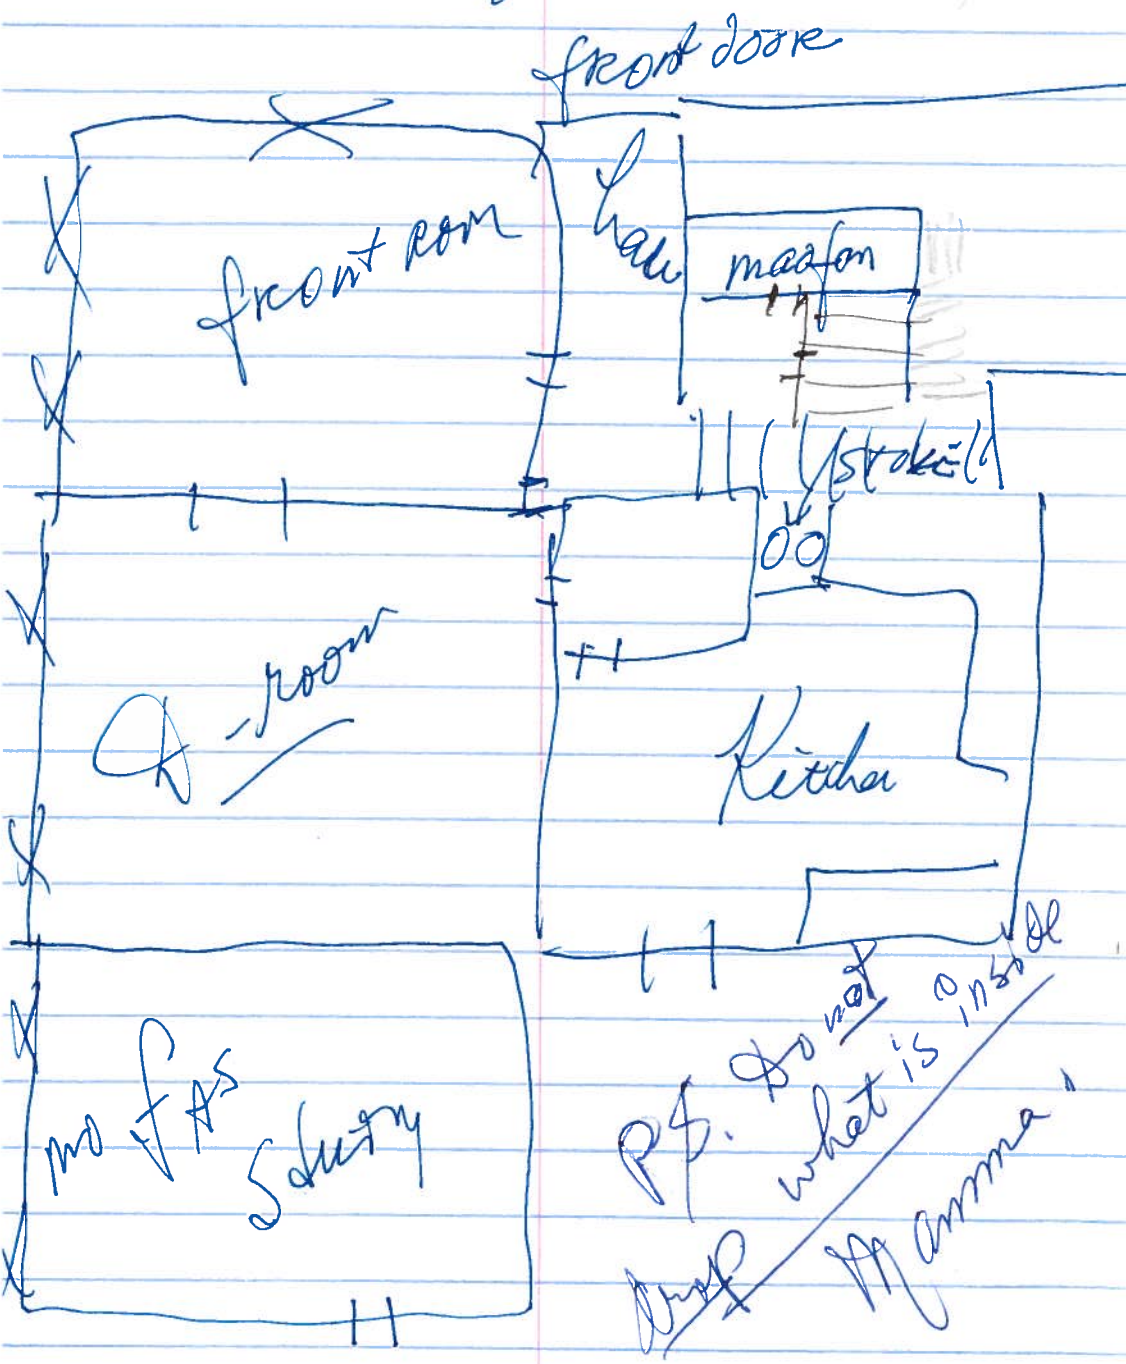 front doore
front rom
hall
maafon
D-room
Kitchen
mo fAs
study
PS. Do not
drop what is inside
Mamma